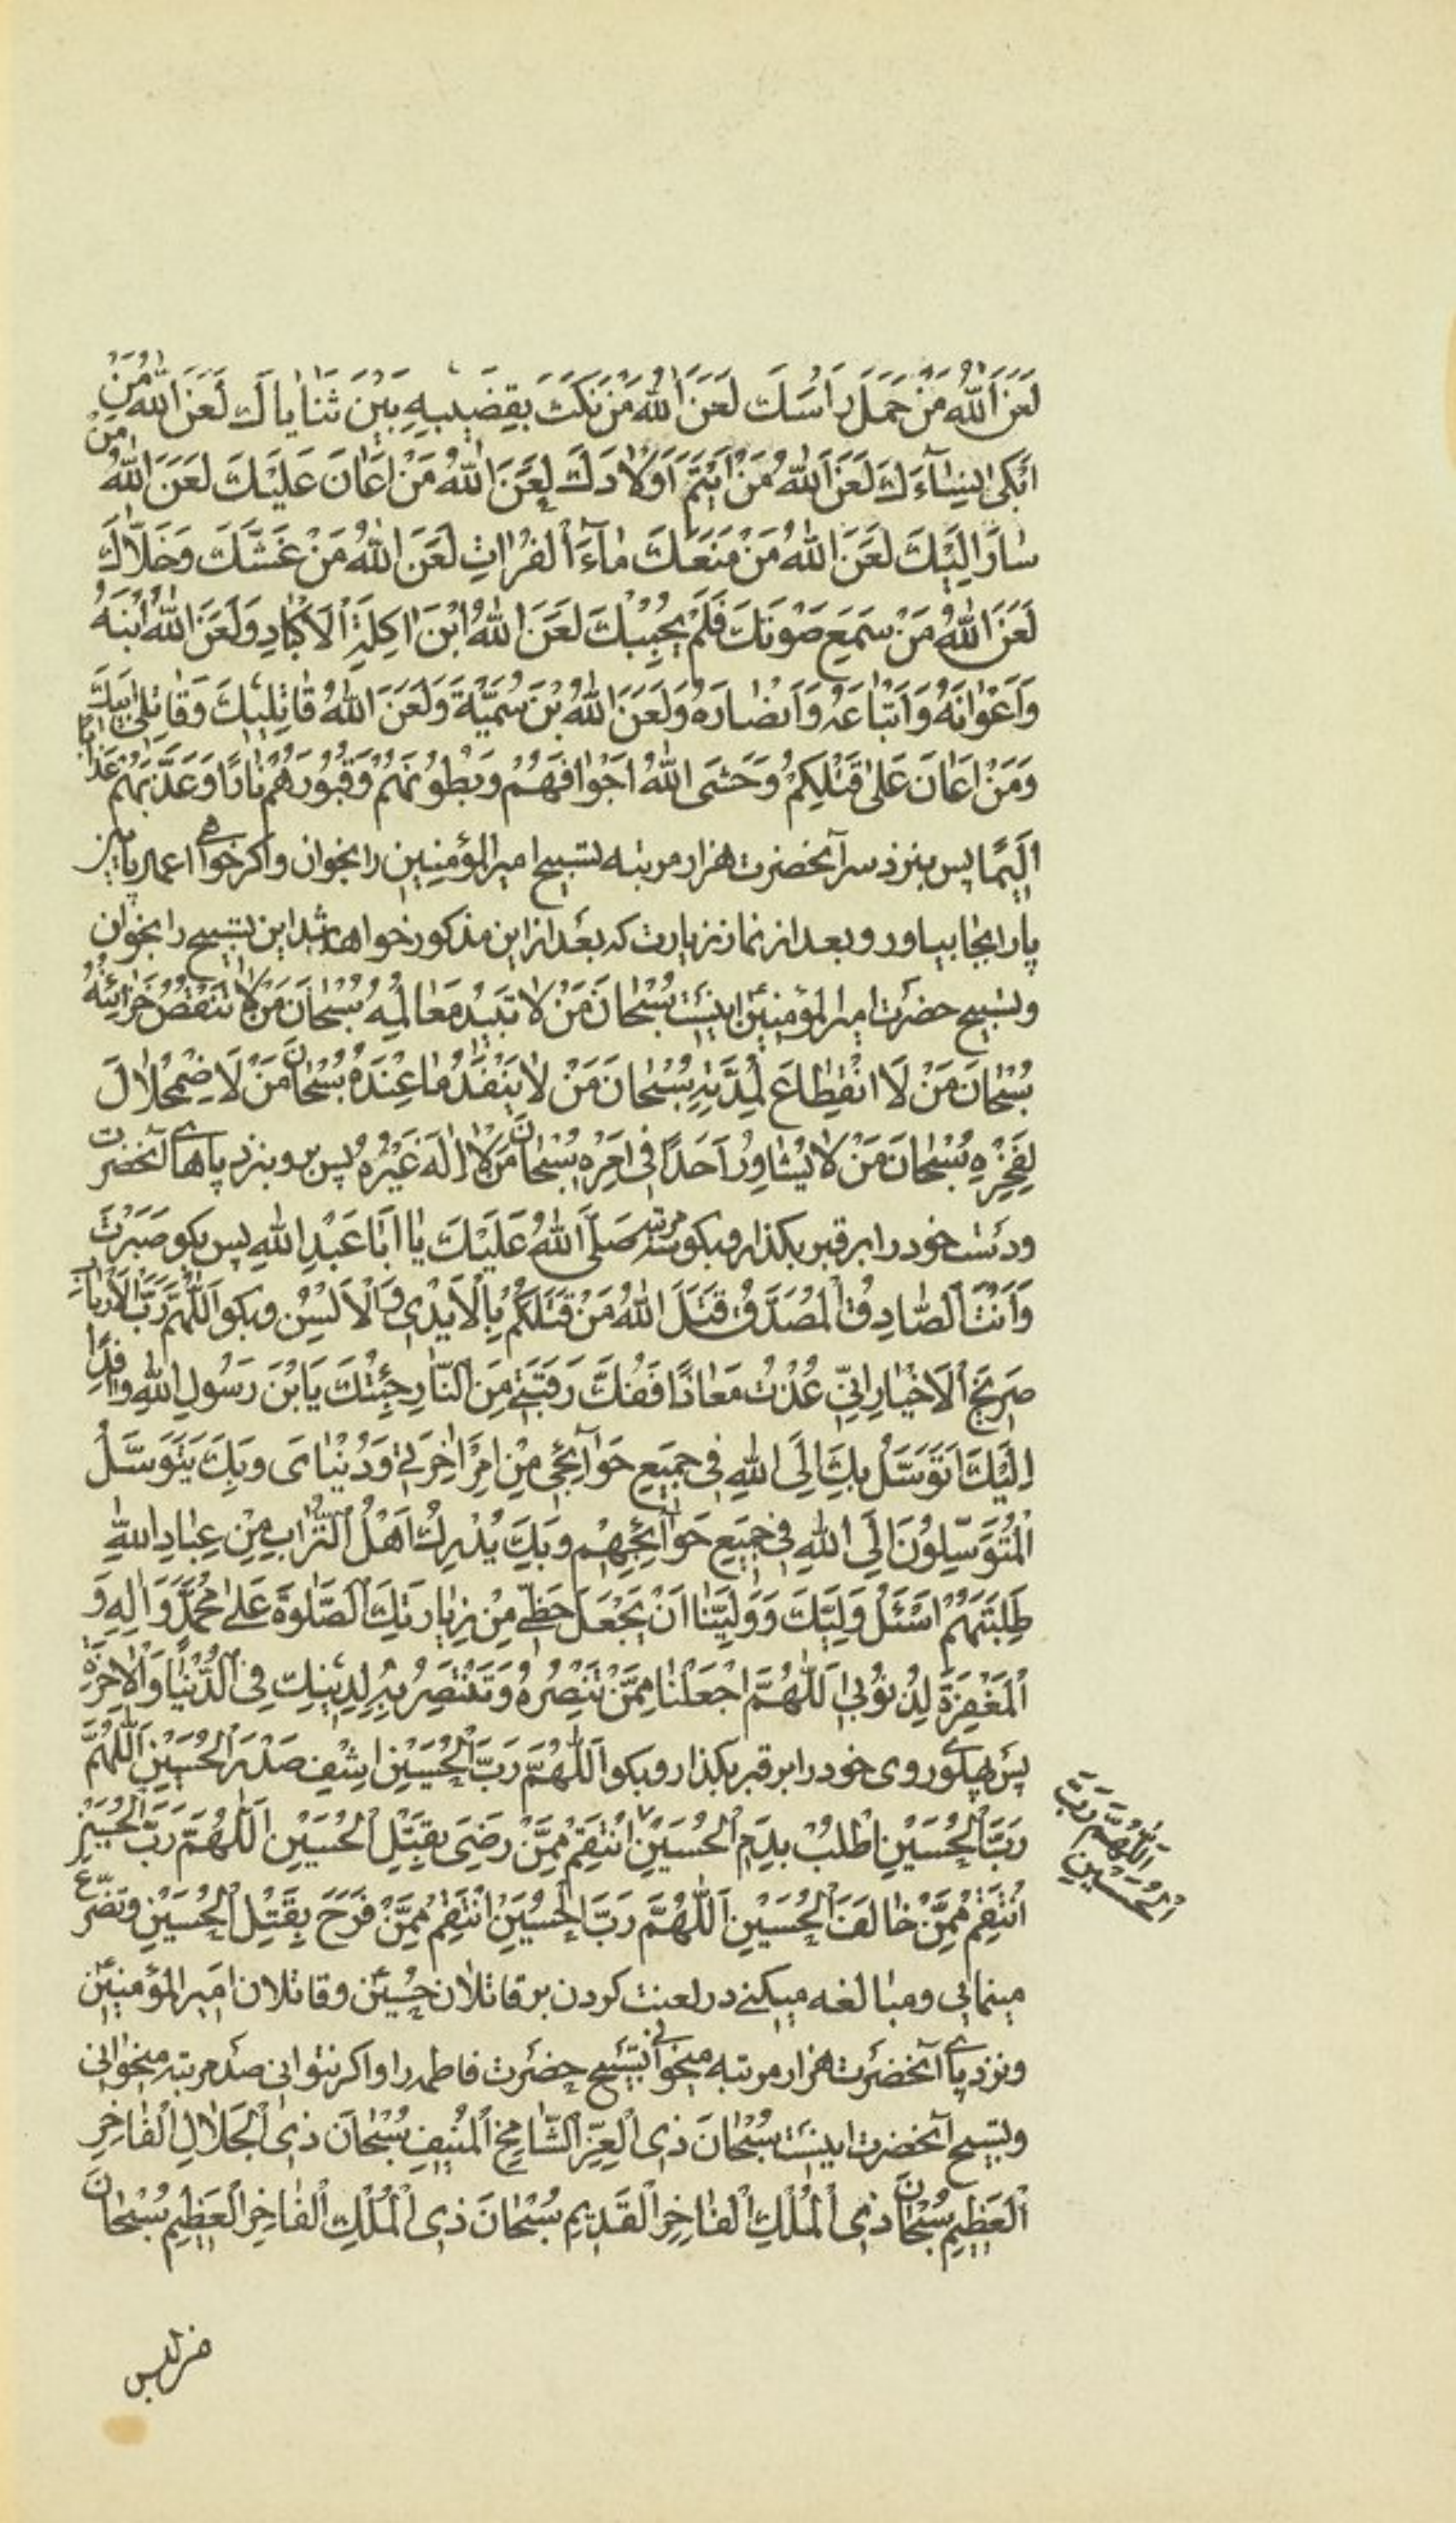 لَعَنَ اللّٰهُ مَنْ حَمَلَ رَاْسَكَ لَعَنَ اللّٰهُ مَنْ نَكَتَ بِقَضِيبِهِ بَيْنَ ثَنٰايٰاكَ لَعَنَ اللّٰهُ مَنْ
اَبْكىٰ نِسٰآءَكَ لَعَنَ اللّٰهُ مَنْ اَيْتَمَ اَوْلٰادَكَ لَعَنَ اللّٰهُ مَنْ اَعٰانَ عَلَيْكَ لَعَنَ اللّٰهُ مَنْ
سٰارَ اِلَيْكَ لَعَنَ اللّٰهُ مَنْ مَنَعَكَ مٰآءَ الْفُرٰاتِ لَعَنَ اللّٰهُ مَنْ غَشَّكَ وَخَلّٰاكَ
لَعَنَ اللّٰهُ مَنْ سَمِعَ صَوْتَكَ فَلَمْ يُجِبْكَ لَعَنَ اللّٰهُ ابْنَ اٰكِلَةِ الْاَكْبٰادِ وَلَعَنَ اللّٰهُ ابْنَهُ
وَاَعْوٰانَهُ وَاَتْبٰاعَهُ وَاَنْصٰارَهُ وَلَعَنَ اللّٰهُ بْنَ سُمَيَّةَ وَلَعَنَ اللّٰهُ قٰاتِلِيكَ وَقٰاتِلى اَبِيكَ
وَمَنْ اَعٰانَ عَلىٰ قَتْلِكُمْ وَحَشَى اللّٰهُ اَجْوٰافَهُمْ وَبُطُونَهُمْ وَقُبُورَهُمْ نٰارًا وَعَذَّبَهُمْ عَذٰابًا
اَلِيمًا پس بنزد سر آنحضرت هزار مرتبه تسبیح امیرالمؤمنین را بخوان و اکر خواهی اعمال پایین
پا را بجا بیاور و بعد از نماز زیارت که بعد از این مذکور خواهد شد این تسبیح را بخوان
و تسبیح حضرت امیرالمؤمنین اینست سُبْحٰانَ مَنْ لٰا تَبِيدُ مَعٰالِمُهُ سُبْحٰانَ مَنْ لٰا تَنْقُصُ خَزٰائِنُهُ
سُبْحٰانَ مَنْ لَا انْقِطٰاعَ لِمُدَّتِهِ سُبْحٰانَ مَنْ لٰا يَنْفَدُ مٰا عِنْدَهُ سُبْحٰانَ مَنْ لَا ضْمِحْلٰالَ
لِفَخْرِهِ سُبْحٰانَ مَنْ لٰا يُشٰاوِرُ اَحَدًا فى اَمْرِهِ سُبْحٰانَ مَنْ لٰا اِلٰهَ غَيْرُهُ پس برو بنزد پاهای آنحضرت
و دست خود را بر قبر بکذار و بکو سه مرتبه صَلَّى اللّٰهُ عَلَيْكَ يٰا اَبٰا عَبْدِ اللّٰهِ پس بکو صَبَرْتَ
وَاَنْتَ الصّٰادِقُ الْمُصَدَّقُ قَتَلَ اللّٰهُ مَنْ قَتَلَكُمْ بِالْاَيْدِى وَالْاَلْسِنِ و بکو اَللّٰهُمَّ رَبَّ الْاَرْبٰابِ
صَرِيخَ الْاَخْيٰارِ اِنّى عُذْتُ مَعٰاذًا فَفُكَّ رَقَبَتِى مِنَ النّٰارِ جِئْتُكَ يَابْنَ رَسُولِ اللّٰهِ وٰافِدًا
اِلَيْكَ اَتَوَسَّلُ بِكَ اِلَى اللّٰهِ فى جَمِيعِ حَوٰآئِجى مِنْ اَمْرِ اٰخِرَتى وَدُنْيٰاىَ وَبِكَ يَتَوَسَّلُ
الْمُتَوَسِّلُونَ اِلَى اللّٰهِ فى جَمِيعِ حَوٰآئِجِهِمْ وَبِكَ يُدْرِكُ اَهْلُ التُّرٰابِ مِنْ عِبٰادِ اللّٰهِ
طَلِبَتَهُمْ اَسْئَلُ وَلِيَّكَ وَوَلِيَّنٰا اَنْ يَجْعَلَ حَظّى مِنْ زِيٰارَتِكَ الصَّلٰوةَ عَلىٰ مُحَمَّدٍ وَاٰلِهِ وَ
الْمَغْفِرَةَ لِذُنُوبى اَللّٰهُمَّ اجْعَلْنٰا مِمَّنْ تَنْصُرُهُ وَتَنْتَصِرُ بِهِ لِدِينِكَ فِى الدُّنْيٰا وَالْاٰخِرَةِ
پس پهلوی روی خود را بر قبر بکذار و بکو اَللّٰهُمَّ رَبَّ الْحُسَيْنِ اشْفِ صَدْرَ الْحُسَيْنِ اَللّٰهُمَّ
رَبَّ الْحُسَيْنِ اطْلُبْ بِدَمِ الْحُسَيْنِ انْتَقِمْ مِمَّنْ رَضِىَ بِقَتْلِ الْحُسَيْنِ اَللّٰهُمَّ رَبَّ الْحُسَيْنِ
اَللّٰهُمَّ رَبَّ
الْحُسَيْنِ
انْتَقِمْ مِمَّنْ خٰالَفَ الْحُسَيْنِ اَللّٰهُمَّ رَبَّ الْحُسَيْنِ انْتَقِمْ مِمَّنْ فَرَحَ بِقَتْلِ الْحُسَيْنِ و تضرّع
مینمایی و مبالغه میکنی در لعنت کردن بر قاتلان حسین و قاتلان امیرالمؤمنین
و نزد پای آنحضرت هزار مرتبه میخوانی تسبیح حضرت فاطمه را و اکر نتوانی صد مرتبه میخوانی
و تسبیح آنحضرت اینست سُبْحٰانَ ذِى الْعِزِّ الشّٰامِخِ الْمُنِيفِ سُبْحٰانَ ذِى الْجَلٰالِ الْفٰاخِرِ
الْعَظِيمِ سُبْحٰانَ ذِى الْمُلْكِ الْفٰاخِرِ الْقَدِيمِ سُبْحٰانَ ذِى الْمُلْكِ الْفٰاخِرِ الْعَظِيمِ سُبْحٰانَ
من لبس